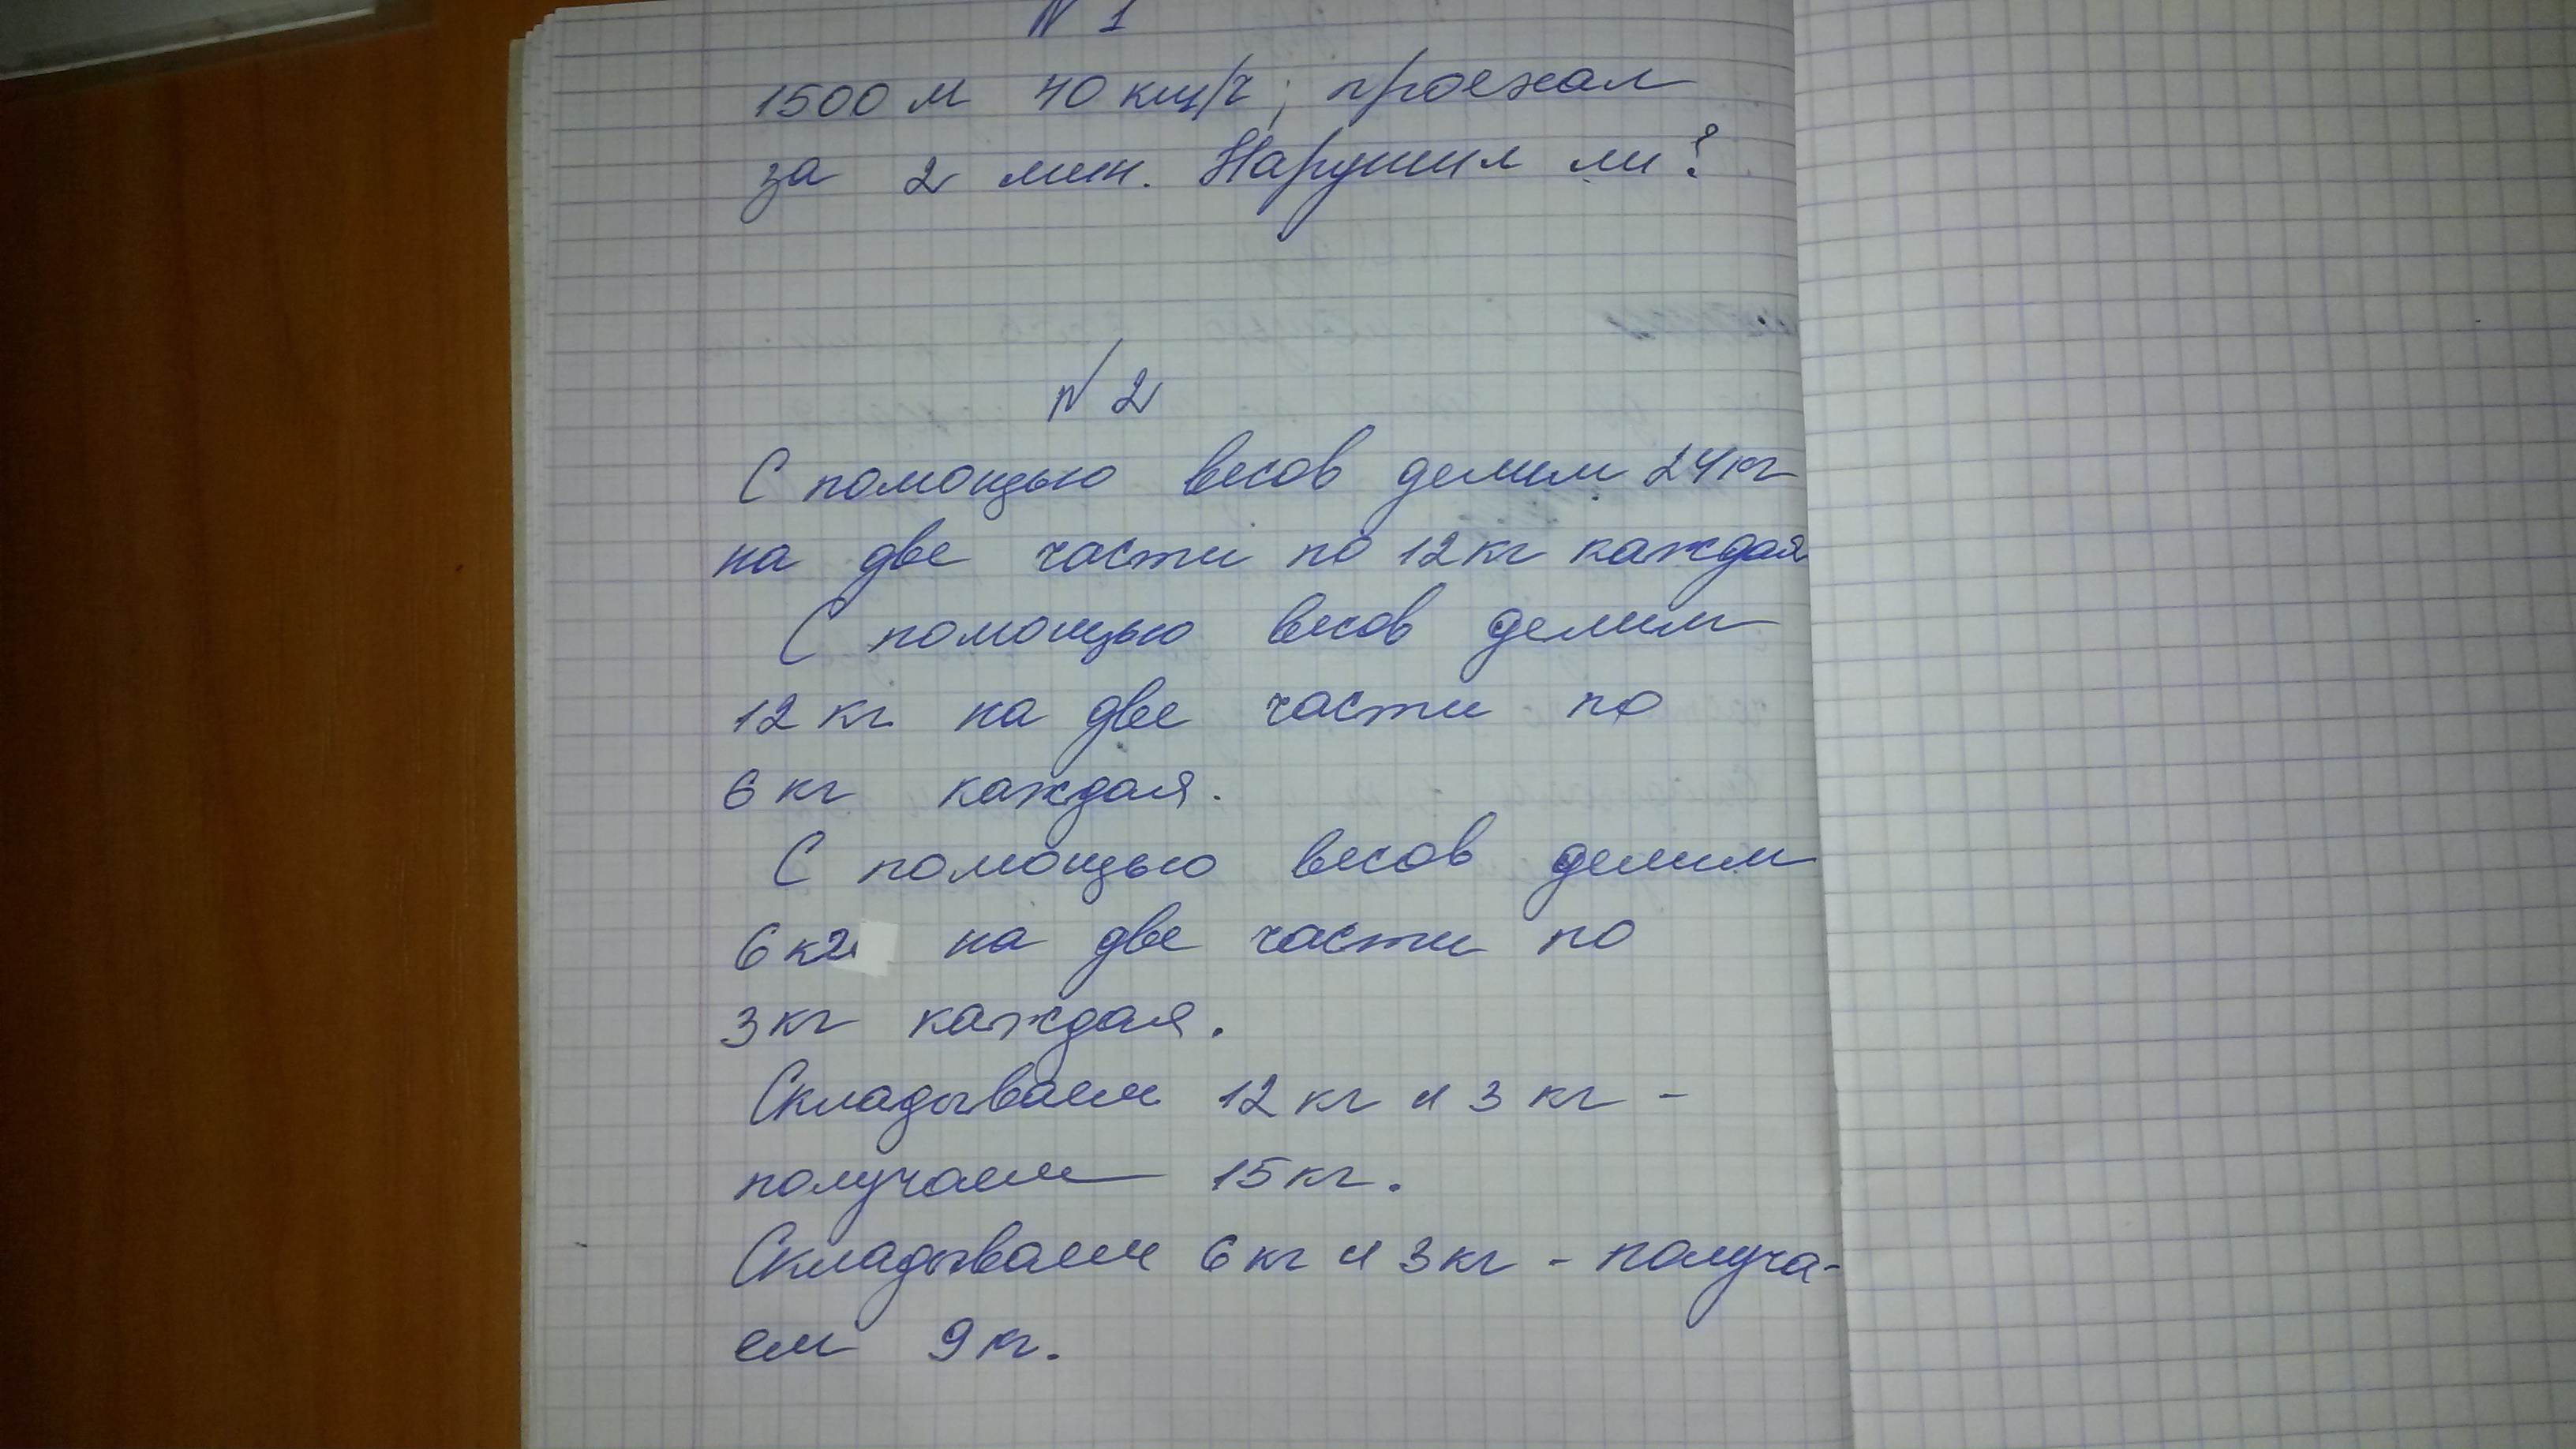 N 1
1500 м 40 км/ч; проехал
за 2 мин. Нарушил ли?
N 2
С помощью весов делим 24кг
на две части по 12 кг каждая
С помощью весов делим
12 кг на две части по
6 кг каждая.
С помощью весов делим
6 кг на две части по
3 кг каждая.
Складываем 12 кг и 3 кг -
получаем 15 кг.
Складываем 6 кг и 3 кг - получа-
ем 9 кг.